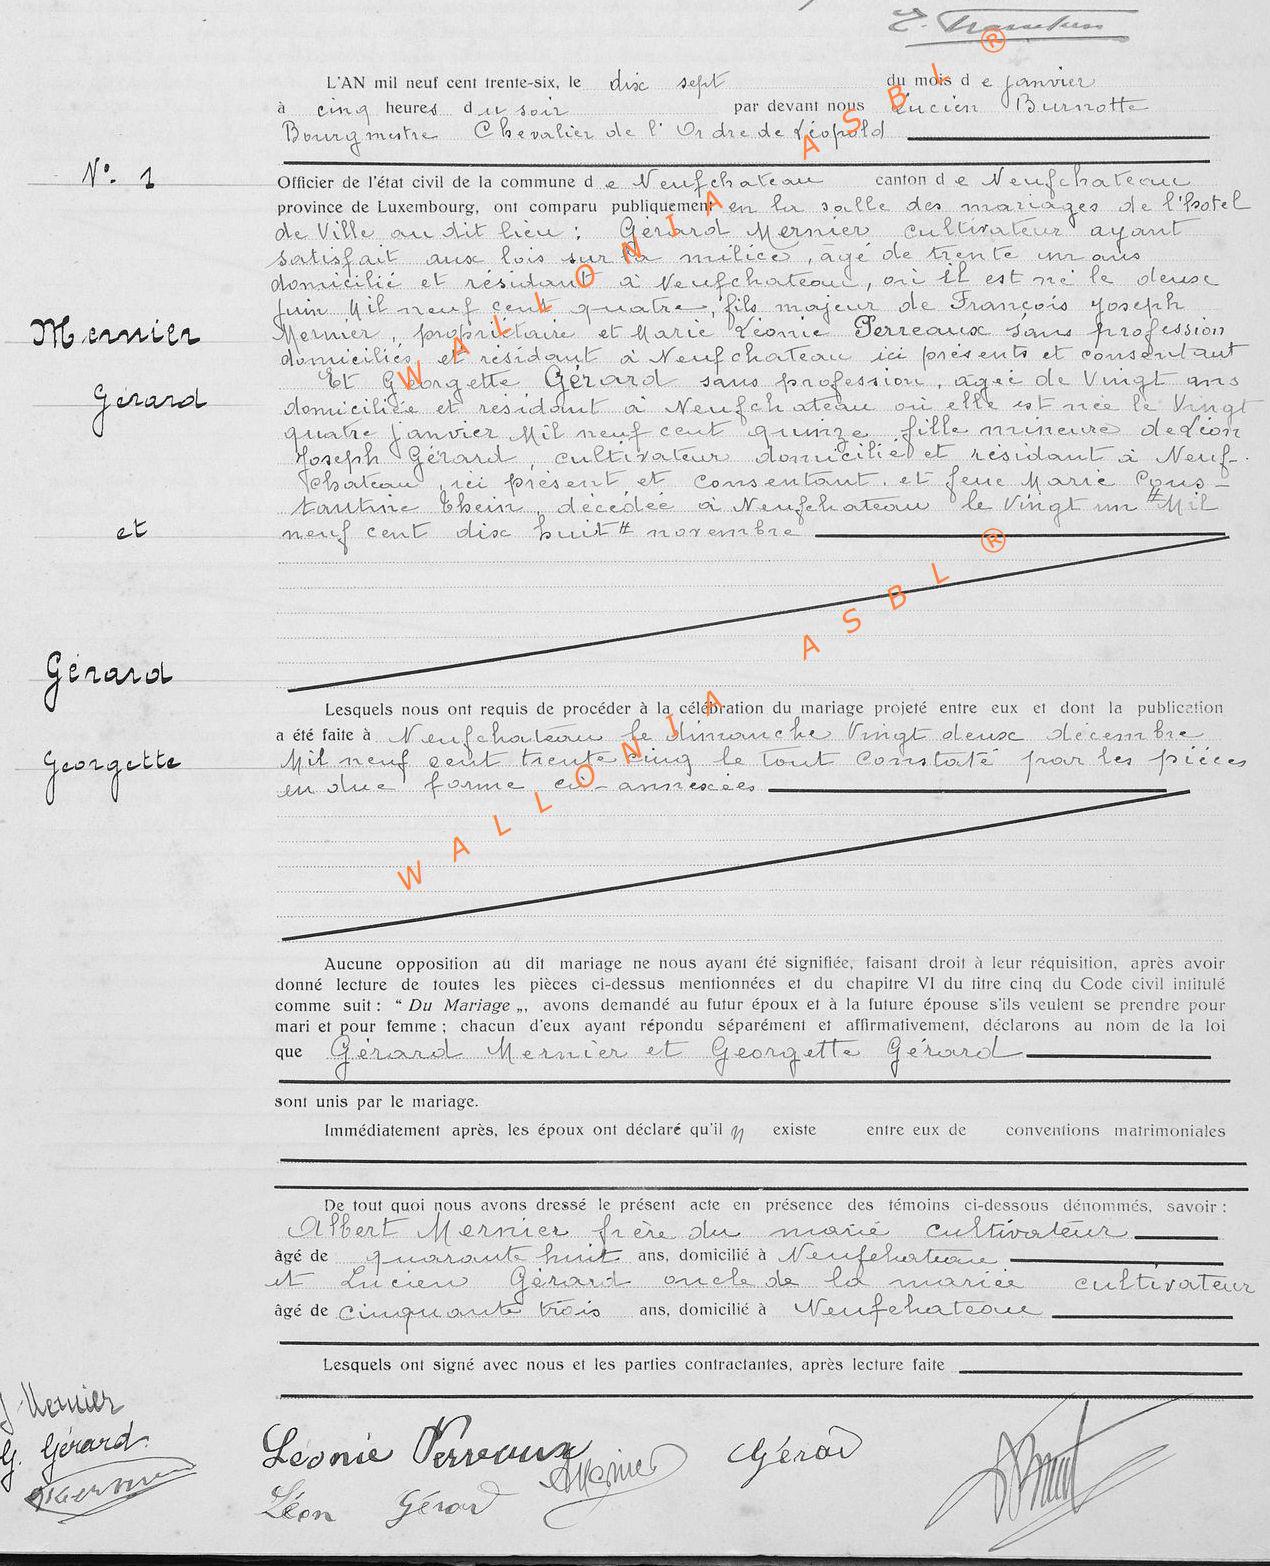 L'AN mil neuf cent trente-six, le dix sept du mois de janvier
à cinq heures du soir par devant nous Lucien Burnotte
Bourgmestre Chevalier de l'Ordre de Léopold
N° 1
Officier de l'état civil de la commune de Neufchateau canton de Neufchateau
province de Luxembourg, ont comparu publiquement en la salle des mariages de l'hotel
de Ville au dit lieu : Gérard Mernier cultivateur ayant
satisfait aux lois sur la milice, âgé de trente un ans
domicilié et résidant à Neufchateau, où il est né le deux
juin Mil neuf cent quatre, fils majeur de François Joseph
Mernier, propriétaire et Marie Léonie Perreaux sans profession
domiciliés et résidant à Neufchateau ici présents et consentant
Et Georgette Gérard sans profession, âgée de Vingt ans
domiciliée et résidant à Neufchateau où elle est née le Vingt
quatre janvier Mil neuf cent quinze, fille mineure de Léon
Joseph Gérard, cultivateur domicilié et résidant à Neuf-
chateau, ici présent et consentant. et feue Marie Cons-
tantine Thein, décédée à Neufchateau le Vingt un # Mil
neuf cent dix huit # novembre
Mernier
Gérard
et
Gérard
Georgette
Lesquels nous ont requis de procéder à la célébration du mariage projeté entre eux et dont la publication
a été faite à Neufchateau le dimanche Vingt deux décembre
Mil neuf cent trente cinq le tout constaté par les pièces
en due forme ci-annexées
Aucune opposition au dit mariage ne nous ayant été signifiée, faisant droit à leur réquisition, après avoir
donné lecture de toutes les pièces ci-dessus mentionnées et du chapitre VI du titre cinq du Code civil intitulé
comme suit : “ Du Mariage „, avons demandé au futur époux et à la future épouse s'ils veulent se prendre pour
mari et pour femme ; chacun d'eux ayant répondu séparément et affirmativement, déclarons au nom de la loi
que Gérard Mernier et Georgette Gérard
sont unis par le mariage.
Immédiatement après, les époux ont déclaré qu'il n existe entre eux de conventions matrimoniales
De tout quoi nous avons dressé le présent acte en présence des témoins ci-dessous dénommés, savoir :
Albert Mernier frère du marié cultivateur
âgé de quarante huit ans, domicilié à Neufchateau
et Lucien Gérard oncle de la mariée cultivateur
âgé de cinquante trois ans, domicilié à Neufchateau
Lesquels ont signé avec nous et les parties contractantes, après lecture faite
J Mernier
G. Gérard
Léonie Perreaux
Mernier
Gérard
Léon Gérard
WALLONIA ASBL ®
WALLONIA ASBL ®